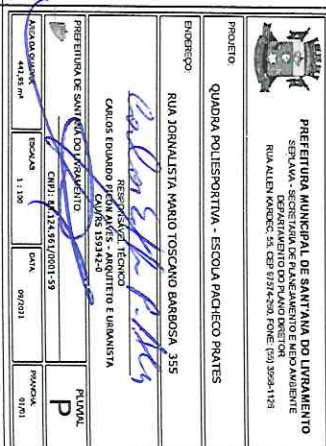 PREFEITURA MUNICIPAL DE SANTANA DO LIVRAMENTO
SEPLAMA - SECRETARIA DE PLANEJAMENTO E MEIO AMBIENTE
DEPARTAMENTO DO PLANO DIRETOR
RUA ALLEN KARDEC, 55, CEP 97574-260, FONE: (55) 3968-1126
PROJETO:
QUADRA POLIESPORTIVA - ESCOLA PACHECO PRATES
ENDEREÇO:
RUA JORNALISTA MARIO TOSCANO BARBOSA 355
RESPONSÁVEL TÉCNICO
CARLOS EDUARDO ALVES - ARQUITETO E URBANISTA
CAU/RS 159342-0
PREFEITURA DE SANTANA DO LIVRAMENTO
CNPJ: 88.124.961/0001-59
PLUVIAL
P
ÁREA DA QUADRA
442,95 m²
ESCALAS
1 : 100
DATA
09/2021
PRANCHA
01/01